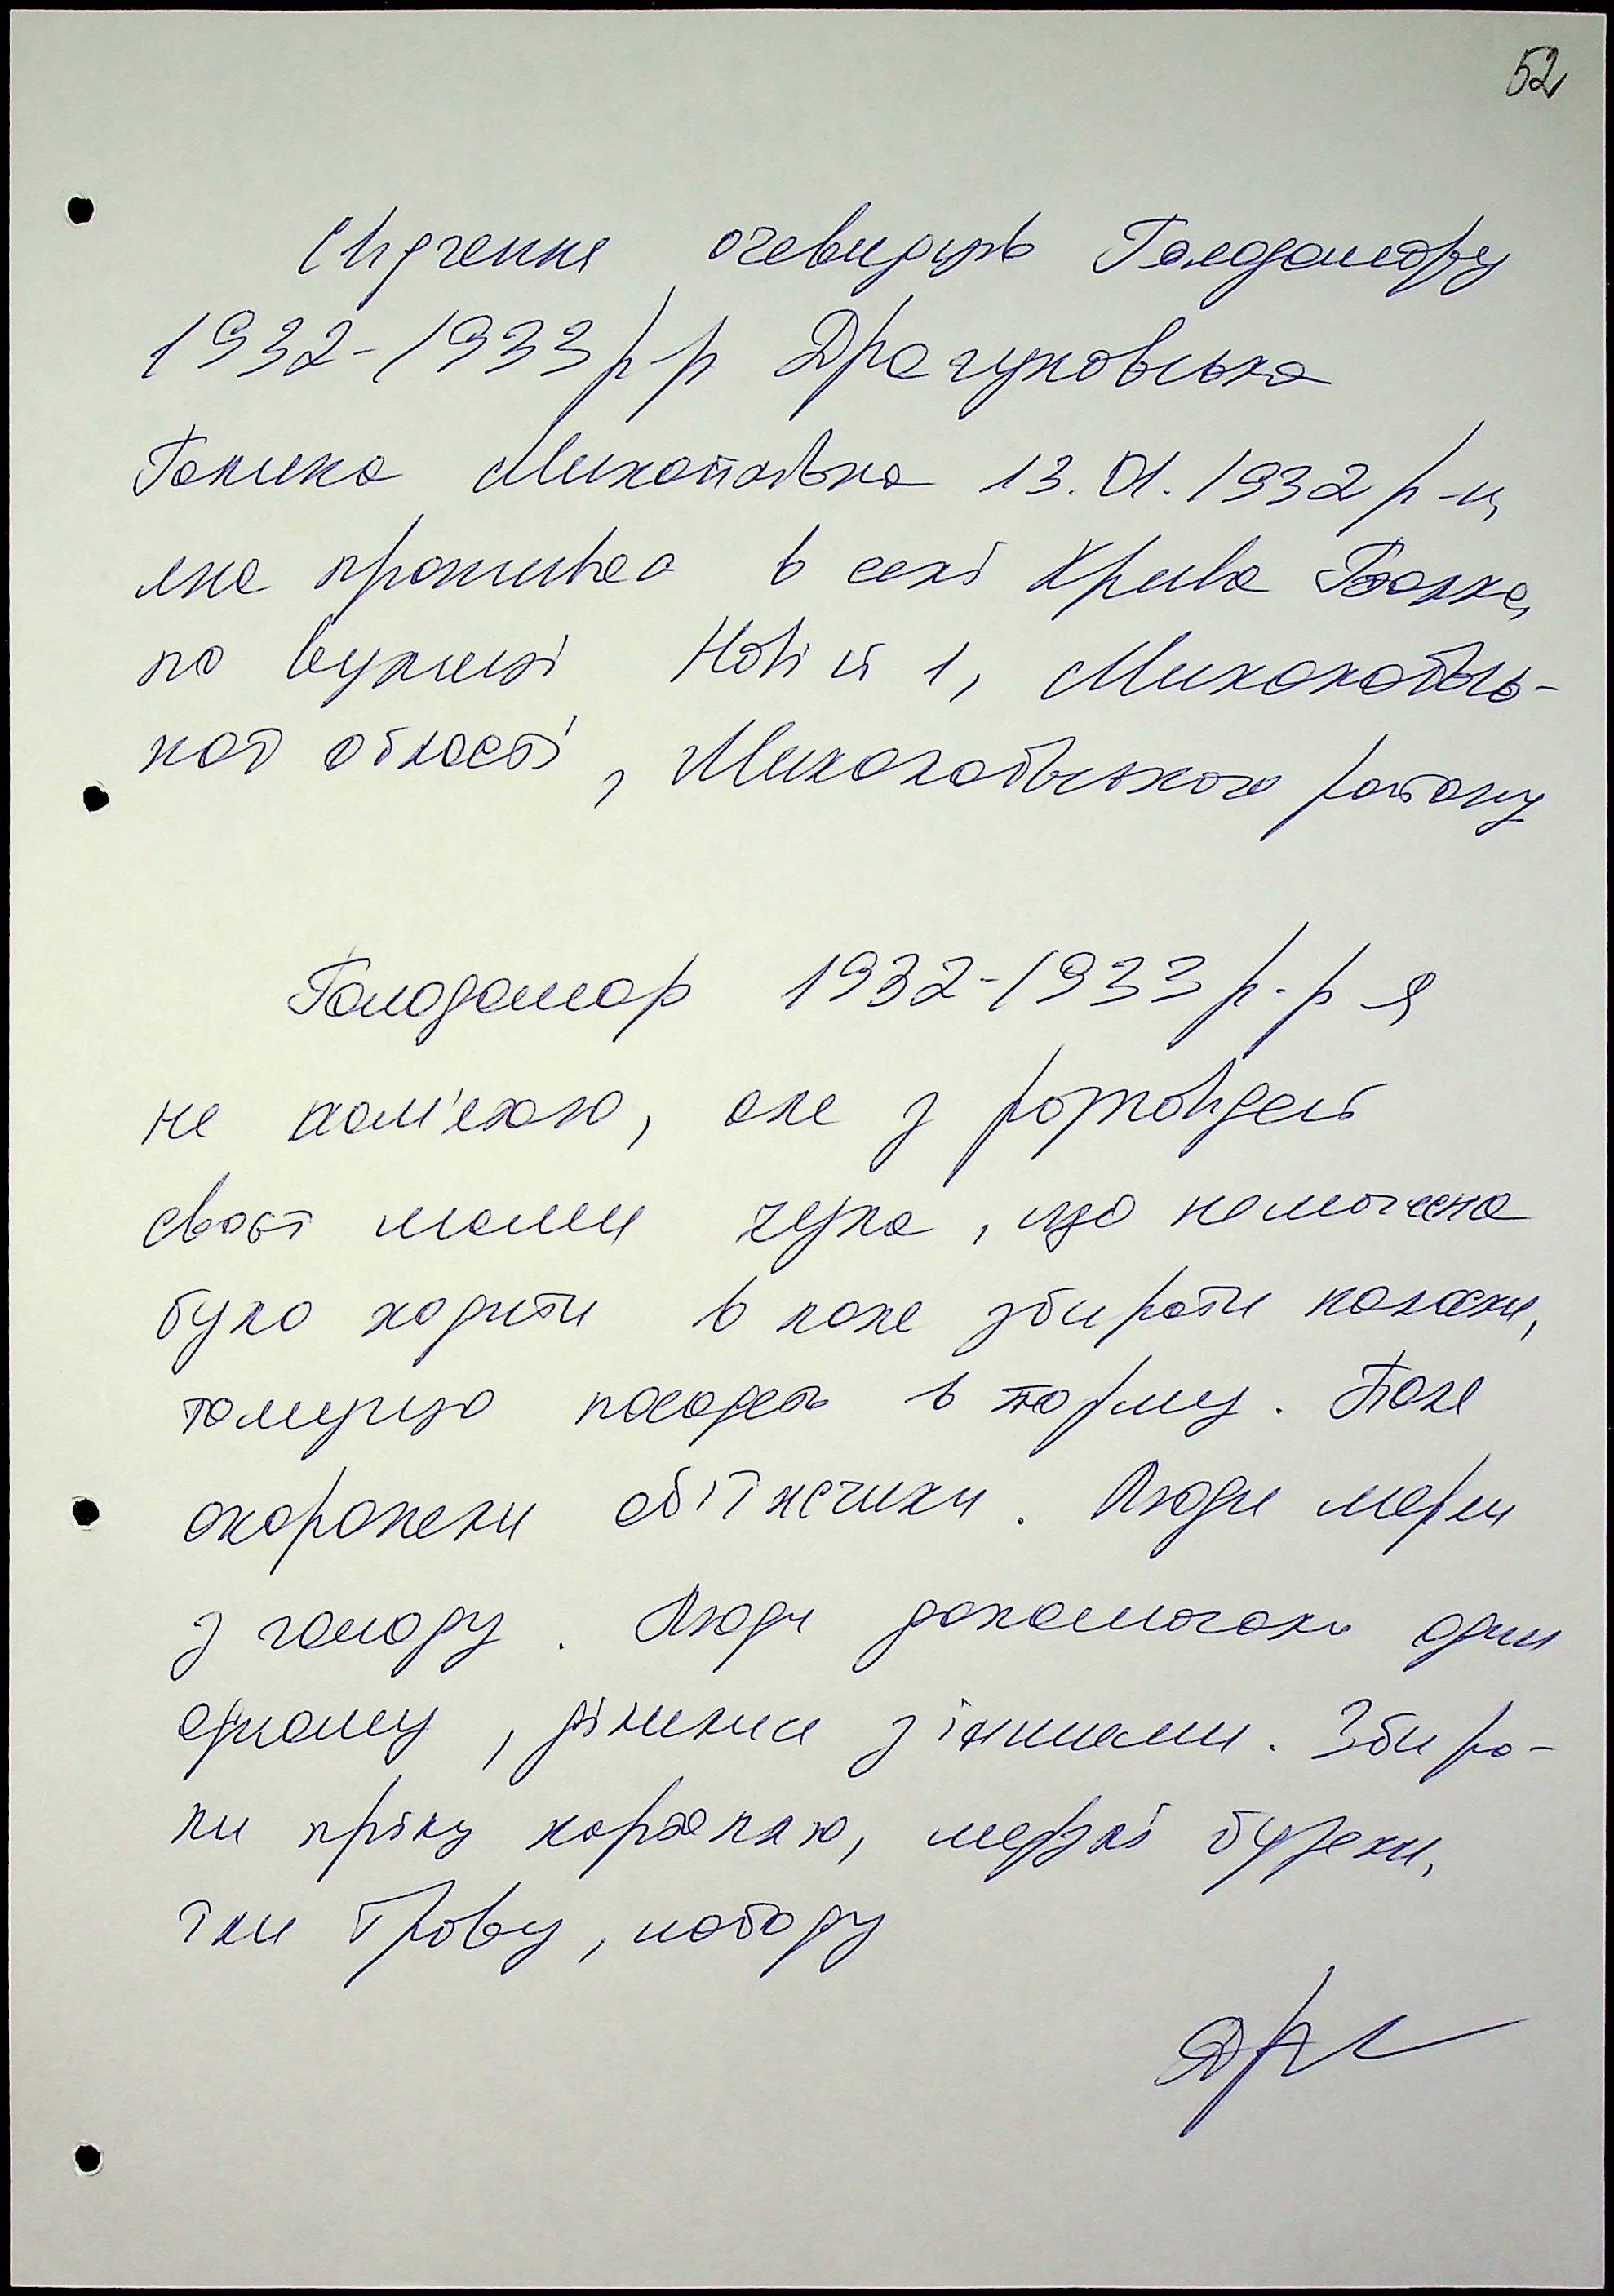 52
Свідчення очевидців Голодомору
1932-1933 р р Драгуновська
Галина Миколаївна 13.01.1932 р-н,
яка проживає в селі Крива Балка,
по вулиці Новій 1, Миколаївсь-
кої області, Миколаївського району
Голодомор 1932-1933 р.р я
не пам'ятаю, але з розповідей
своєї мами чула, що неможна
було ходити в поле збирати колоски,
томущо посадять в тюрму. Поле
охороняли обїжсчики. Люди мерли
з голоду. Люди допомогали один
одному, ділилися з іншими. Збира-
ли гнілу картоплю, мерзлі буряки,
їли траву, лободу